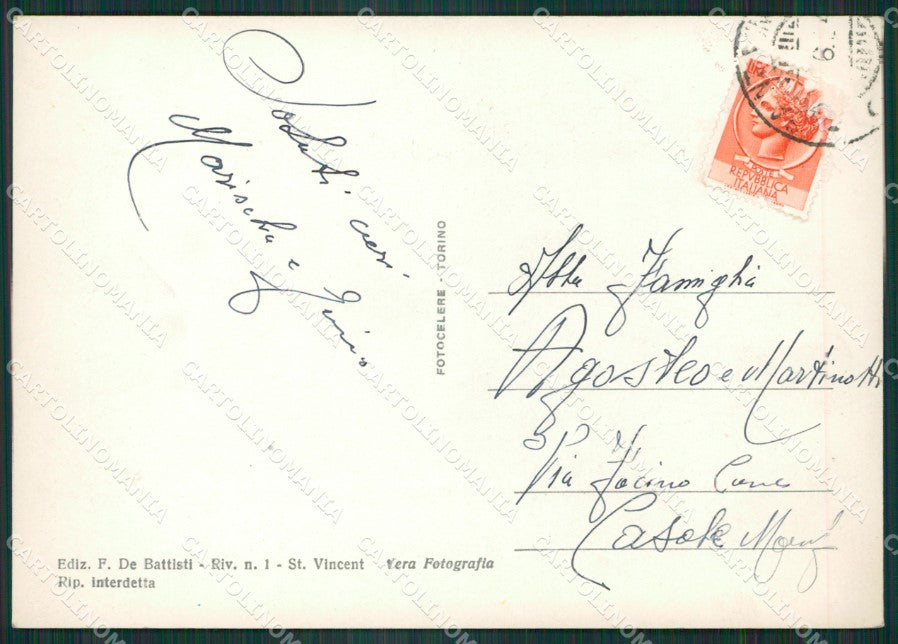 Saluti cari
Marischa e
FOTOCELERE - TORINO
POSTE
REPVBBLICA
ITALIANA
Alla Famiglia
Agosteo e Martinotti
Via Facino Cane
Casale Monf
Ediz. F. De Battisti - Riv. n. 1 - St. Vincent Vera Fotografia
Rip. interdetta
CARTOLINOMANIA